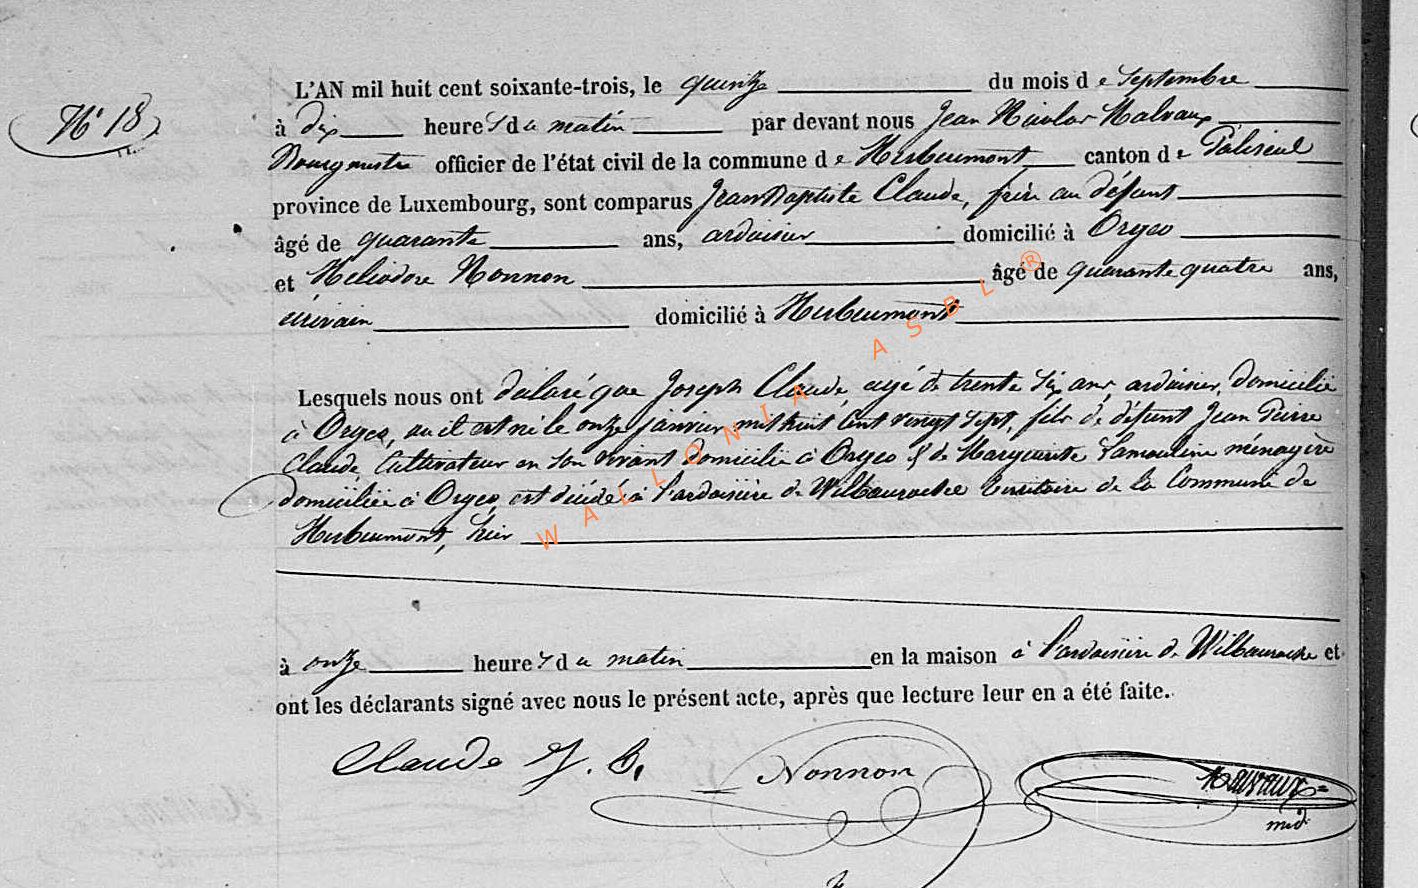 L'AN mil huit cent soixante-trois, le quinze du mois de Septembre
N° 18
à dix heures du matin par devant nous Jean Nicolas Malvaux
Bourgmestre officier de l'état civil de la commune de Herbeumont canton de Paliseul
province de Luxembourg, sont comparus Jean Baptiste Claude, frère au défunt
âgé de quarante ans, ardoisier domicilié à Orgeo
et Héliodore Nonnon âgé de quarante quatre ans,
écrivain domicilié à Herbeumont
Lesquels nous ont déclaré que Joseph Claude, agé de trente six ans, ardoisier, domicilié
à Orgeo, où il est né le onze janvier mil huit cent vingt sept, fils de défunt Jean Pierre
Claude, Cultivateur en son vivant domicilié à Orgeo & de Marguerite Lamouline ménagère
domiciliée à Orgeo, est décédé à l'ardoisière de Wilbauroche territoire de la Commune de
Herbeumont, hier
à onze heures du matin en la maison à l'ardoisière de Wilbauroche et
ont les déclarants signé avec nous le présent acte, après que lecture leur en a été faite.
Claude J. B. Nonnon Malvaux
WALLONIA ASBL ®